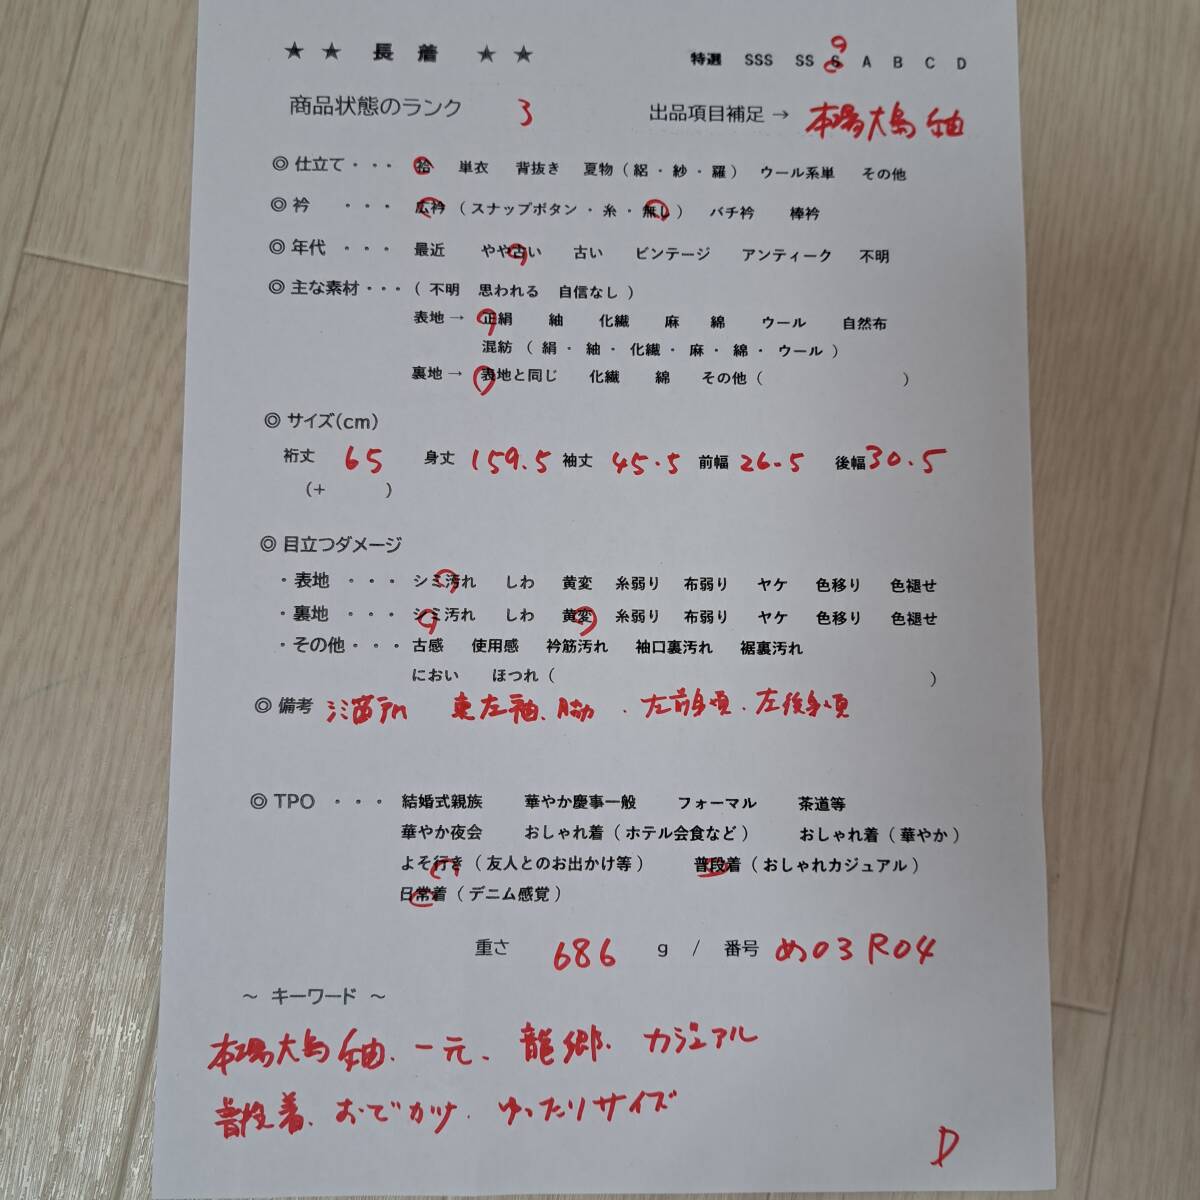 ★ ★ 長 着 ★ ★ 特選 SSS SS S A B C D
商品状態のランク 3 出品項目補足 → 本場大島紬
◎ 仕立て・・・ 袷 単衣 背抜き 夏物 ( 絽 ・ 紗 ・ 羅 ) ウール系単 その他
◎ 衿 ・・・ 広衿 ( スナップボタン ・ 糸 ・ 無し ) バチ衿 棒衿
◎ 年代 ・・・ 最近 やや古い 古い ビンテージ アンティーク 不明
◎ 主な素材・・・ ( 不明 思われる 自信なし )
表地 → 正絹 紬 化繊 麻 綿 ウール 自然布
混紡 ( 絹 ・ 紬 ・ 化繊 ・ 麻 ・ 綿 ・ ウール )
裏地 → 表地と同じ 化繊 綿 その他 ( )
◎ サイズ(cm)
裄丈 65 身丈 159.5 袖丈 45.5 前幅 26.5 後幅 30.5
(+ )
◎ 目立つダメージ
・表地 ・・・ シミ汚れ しわ 黄変 糸弱り 布弱り ヤケ 色移り 色褪せ
・裏地 ・・・ シミ汚れ しわ 黄変 糸弱り 布弱り ヤケ 色移り 色褪せ
・その他・・・ 古感 使用感 衿筋汚れ 袖口裏汚れ 裾裏汚れ
におい ほつれ ( )
◎ 備考 シミ箇所 左袖、脇、左前身頃、左後身頃
◎ TPO ・・・ 結婚式親族 華やか慶事一般 フォーマル 茶道等
華やか夜会 おしゃれ着 ( ホテル会食など ) おしゃれ着 ( 華やか )
よそ行き ( 友人とのお出かけ等 ) 普段着 ( おしゃれカジュアル )
日常着 ( デニム感覚 )
重さ 686 g / 番号 め03R04
～ キーワード ～
本場大島紬、一元、龍郷、カジュアル
普段着、おでかけ、ゆったりサイズ
D